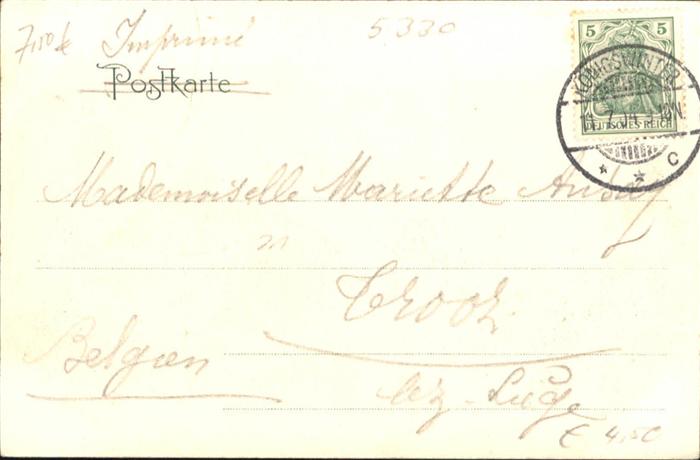 7,50 € Imprimé 5330
Postkarte
5 5
DEUTSCHES REICH
KÖNIGSWINTER
7.04
C
Mademoiselle Mariette
in
Trooz
Belgien
Liège
€ 4,50